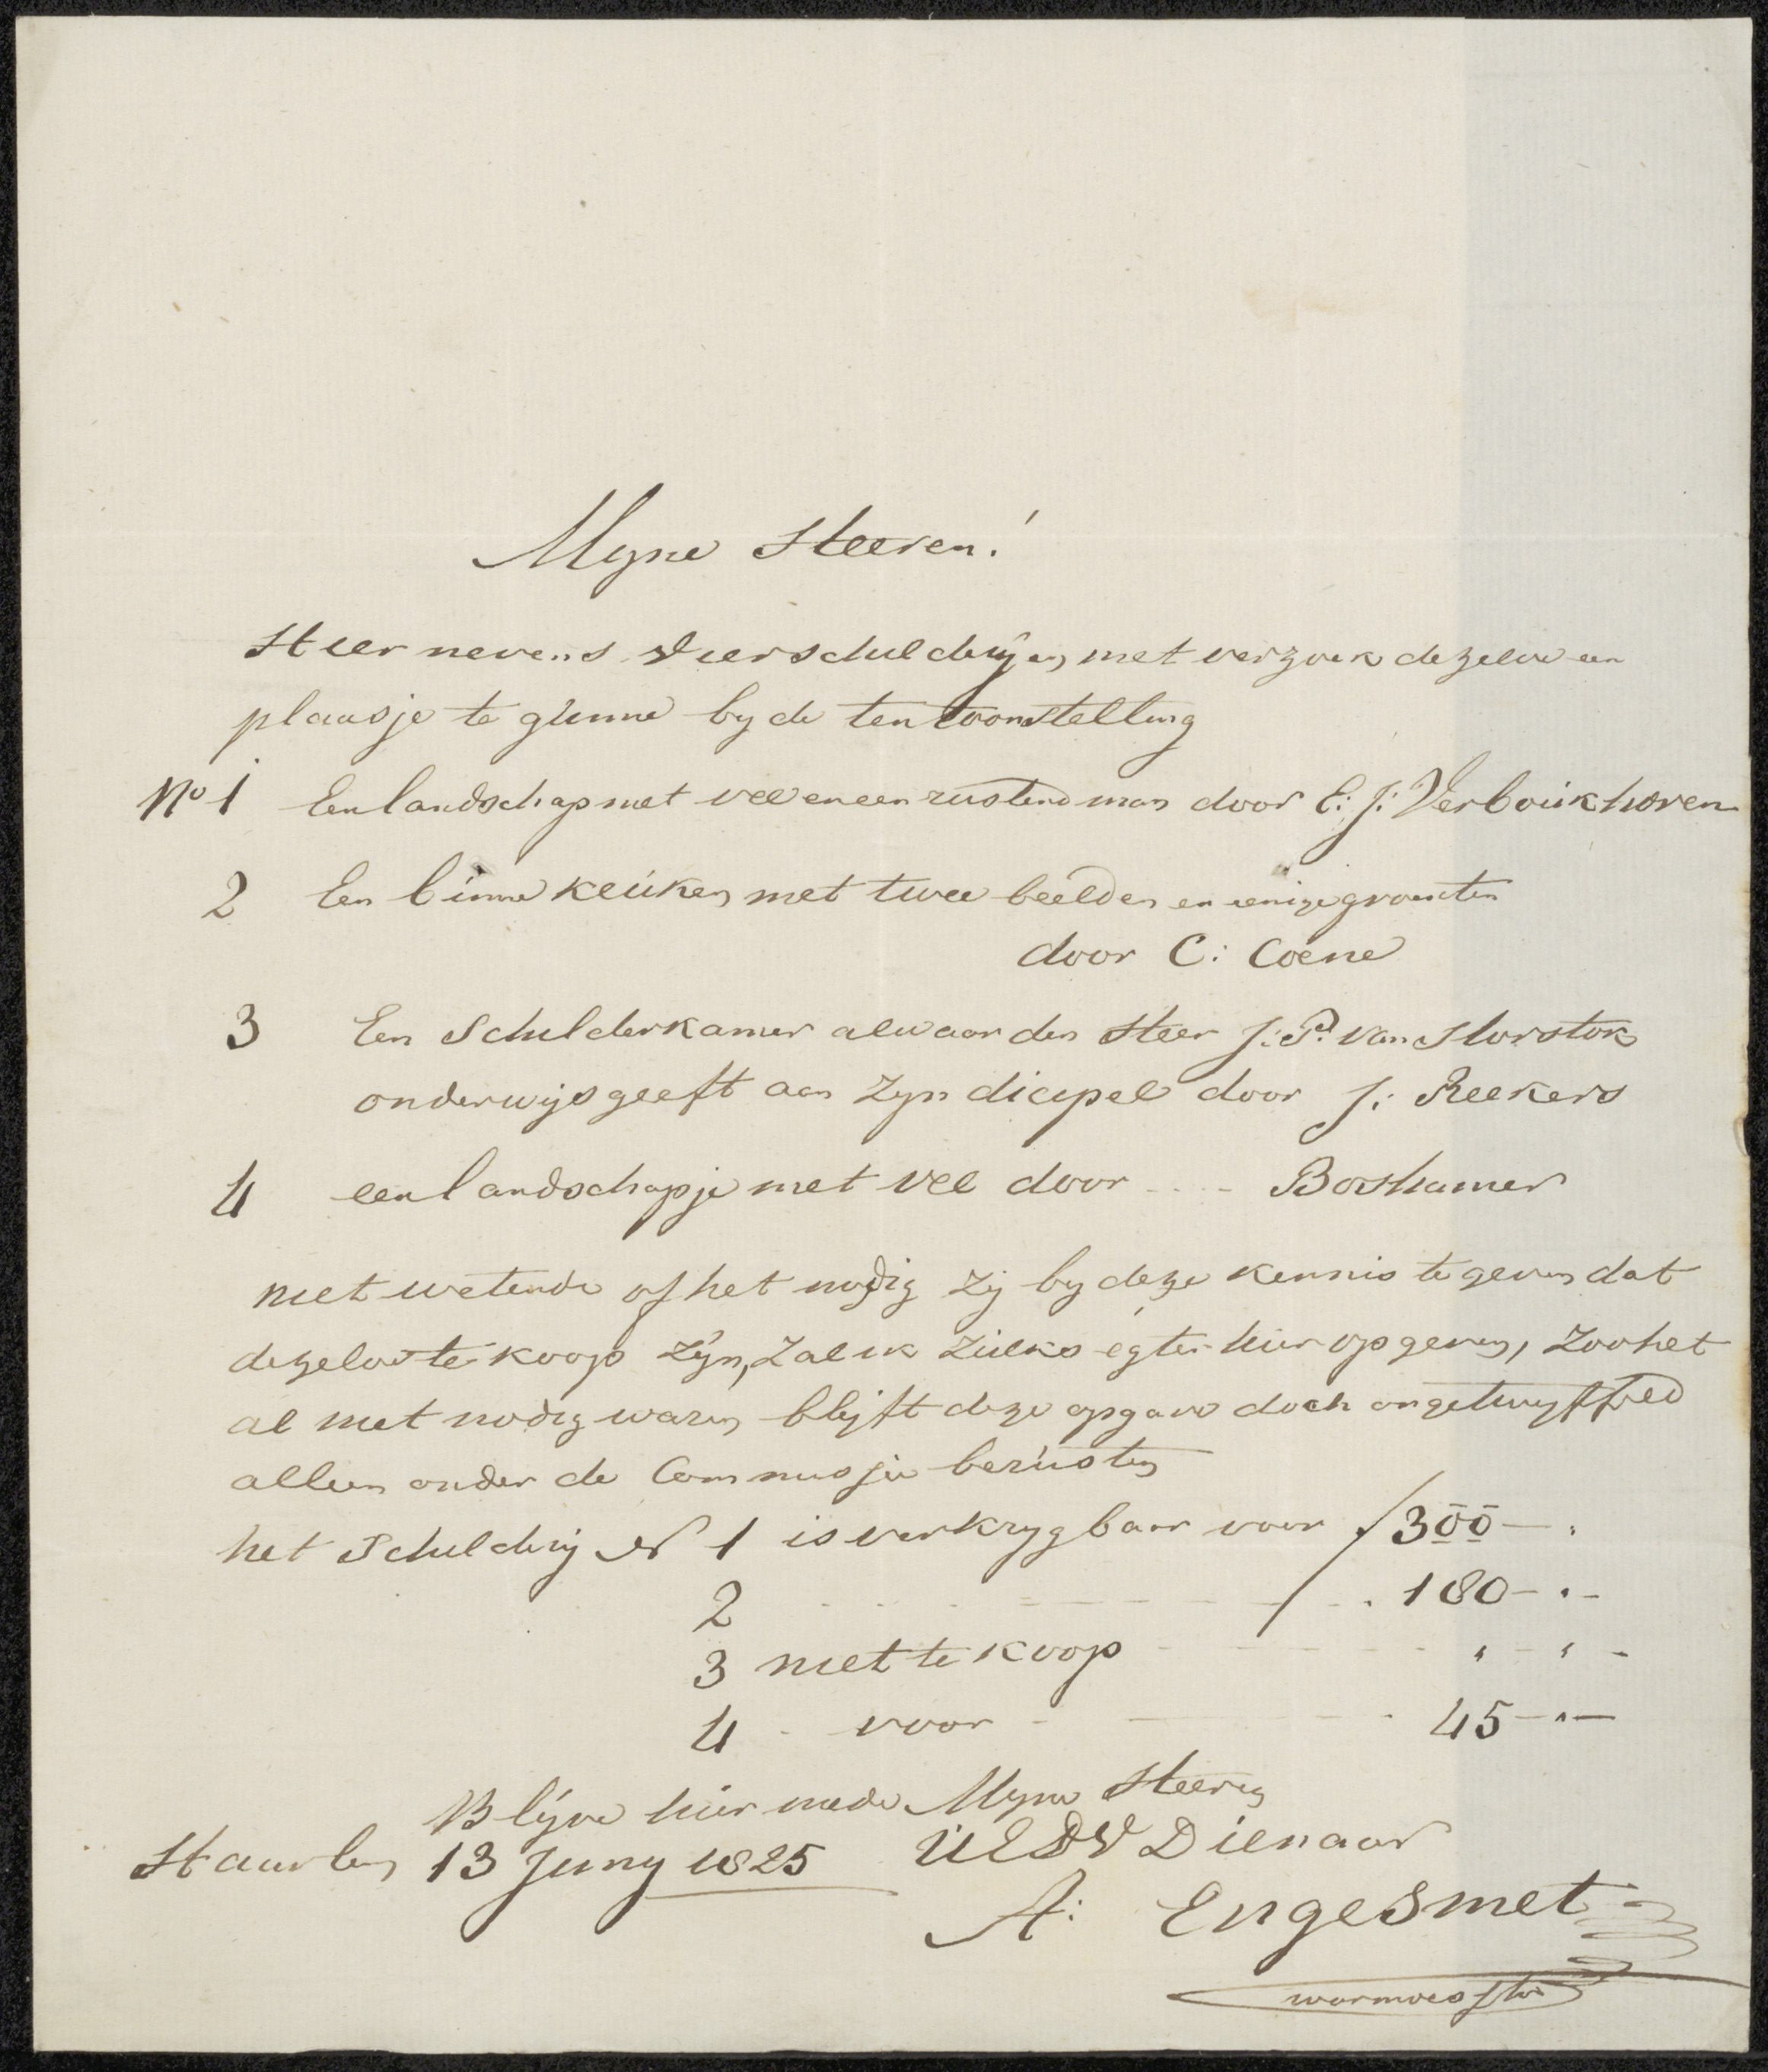 Myne Heeren!
Hier nevens vier schilderijen, met verzoek dezelve een
plaasje te gunne by de ten toonstelling
No 1 Een landschap met vee en een rustend man door E: J: Verboúkhoven
2 Een binne keúken met twee beelden en eenige groenten
door C: Coene
3 Een Schilderkamer alwaar den Heer J: P. van Horstok
onderwijs geeft aan Zyn dicipel door J: Reekers
4 een landschapje met vee door .... Boshamer
niet wetende of het nodig Zij by deze kennis te geven dat
dezelve te koop Zÿn, Zal ik Zúlks egter hier opgeven, Zoo het
al niet nodig waren blijft deze opgave doch ongetwyffeld
alleen onder de Commissie berústen
het Schilderij No 1 is verkrygbaar voor ƒ 300 — .
2 - - - - - - ƒ . 180 - . -
3 niet te koop - - - - - -
4 - voor - - - - 45 - " -
Blÿve hier mede Myne Heeren
Haarlem 13 Juny 1825 UEDW Dienaar
A: Engesmet
warmoesstr